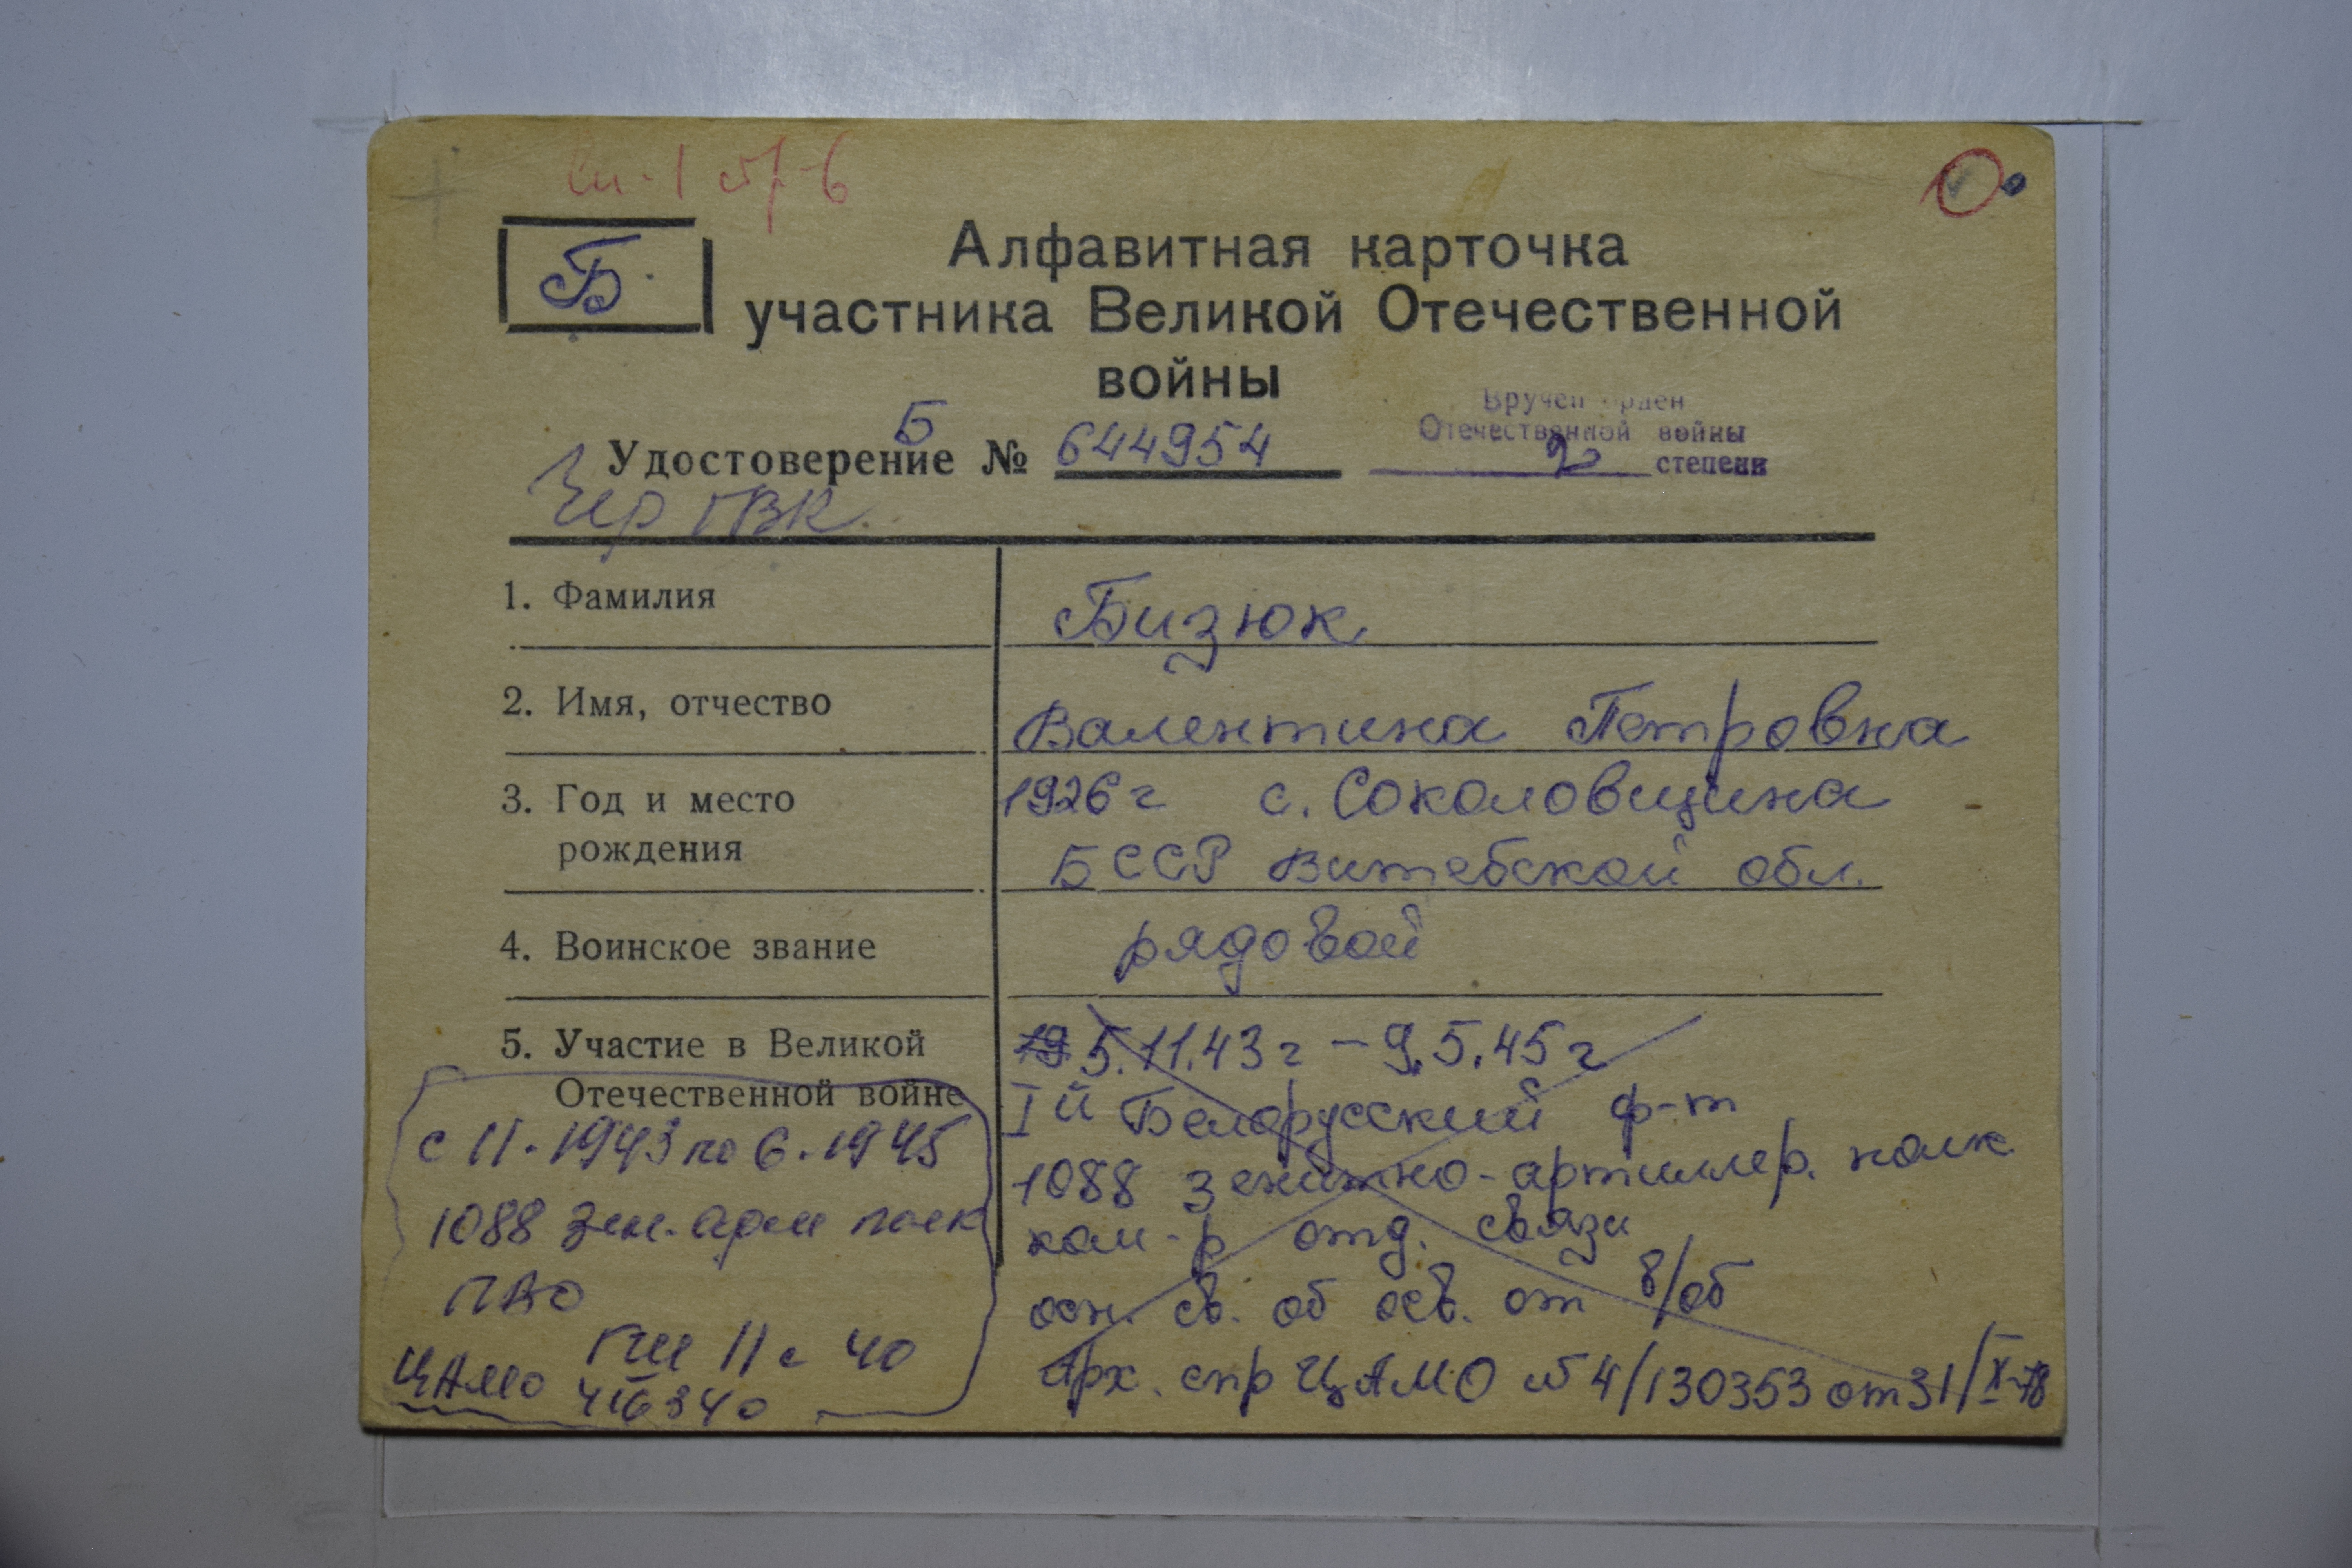 Б
Алфавитная карточка
участника Великой Отечественной
войны
Вручен орден
Отечественной войны
2 степени
Б
Удостоверение № 644954
ГВК
1. Фамилия Бизюк
2. Имя, отчество Валентина Петровна
3. Год и место 1926 г с. Соколовщина
рождения БССР Витебской обл.
4. Воинское звание рядовой
5. Участие в Великой 5.11.43 г – 9.5.45 г
Отечественной войне Iй Белорусский ф-т
1088 зенитно-артиллер. полк
ком-р отд. связи
осн. св. об осв. от в/об
Арх. спр ЦАМО № 4/130353 от 31/X-78
с 11.1943 по 6.1945
1088 зен. арт полк
ПВО
11 с 40
ЦАМО 416340